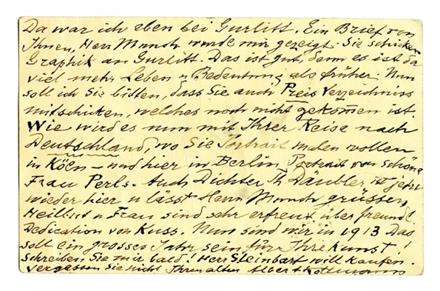 Da war ich eben bei Gurlitt. Ein Brief von
Ihnen, Herr Munch wurde mir gezeigt. Sie schicken
Graphik an Gurlitt. Das ist gut, denn es ist da
viel mehr Leben u Bedeutung als früher. Nun
soll ich Sie bitten, dass Sie auch Preis Verzeichniss
mitschicken, welches noch nicht gekommen ist.
Wie wird es nun mit Ihrer Reise nach
Deutschland, wo Sie Portrait malen wollen
in Köln und hier in Berlin Portrait von schöne
Frau Perls. Auch Dichter Th Däubler ist jetzt
wieder hier u lässt Herrn Munch grüssen,
Heilbut u Frau sind sehr erfreut über freundl.
Dedication von Kuss. Nun sind wir in 1913 Das
soll ein grosses Jahr sein für Ihre Kunst!
Schreiben Sie mir bald! Herr Steinbart will kaufen.
Vergessen Sie nicht Ihren alten Albert Kollmann